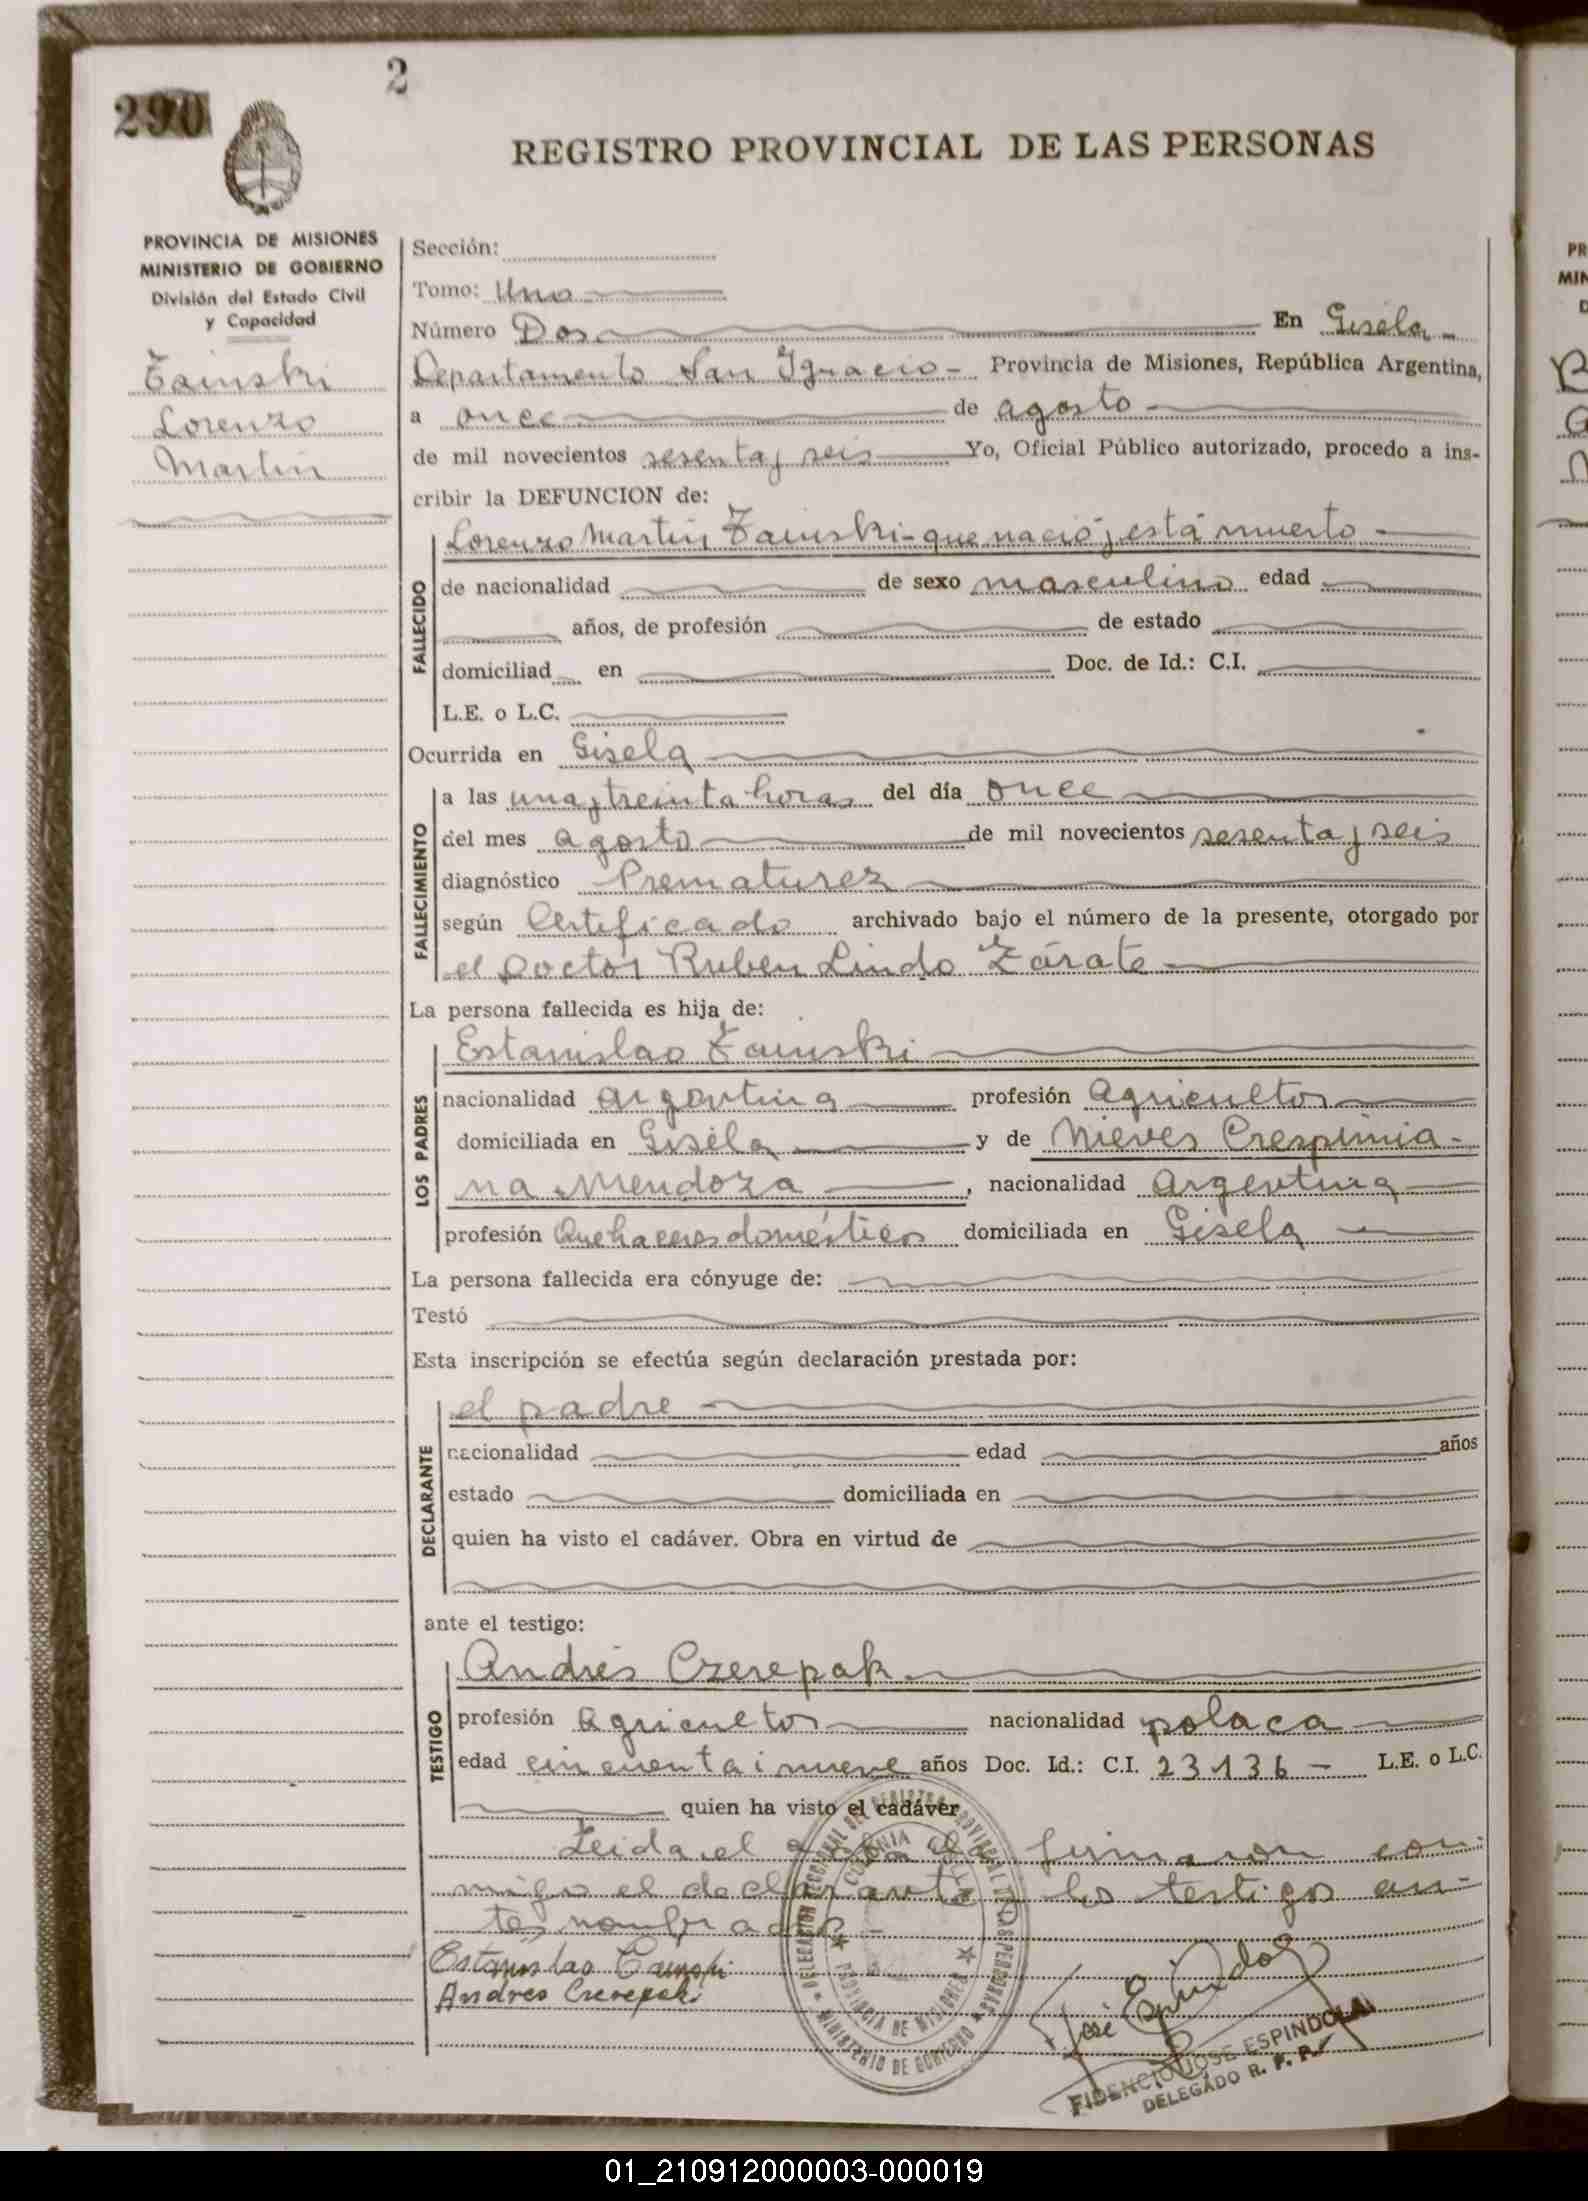 2
290
REGISTRO PROVINCIAL DE LAS PERSONAS
PROVINCIA DE MISIONES
MINISTERIO DE GOBIERNO
División del Estado Civil
y Capacidad
Zainski
Lorenzo
Martin
Sección:
Tomo: Uno
Número Dos En Gisela
Departamento San Ignacio - Provincia de Misiones, República Argentina,
a once de agosto
de mil novecientos sesenta y seis Yo, Oficial Público autorizado, procedo a ins-
cribir la DEFUNCION de:
Lorenzo Martin Zainski - que nació y está muerto -
FALLECIDO
de nacionalidad de sexo masculino edad
años, de profesión de estado
domiciliad en Doc. de Id.: C.I.
L.E. o L.C.
Ocurrida en Gisela
FALLECIMIENTO
a las una y treinta horas del día once
del mes agosto de mil novecientos sesenta y seis
diagnóstico Prematurez
según Certificado archivado bajo el número de la presente, otorgado por
el Doctor Ruben Lindo Zárate
La persona fallecida es hija de:
LOS PADRES
Estanislao Zainski
nacionalidad argentina profesión Agricultor
domiciliada en Gisela y de Nieves Crespinia-
na Mendoza, nacionalidad Argentina
profesión Quehaceres domésticos domiciliada en Gisela
La persona fallecida era cónyuge de:
Testó
Esta inscripción se efectúa según declaración prestada por:
DECLARANTE
el padre
nacionalidad edad años
estado domiciliada en
quien ha visto el cadáver. Obra en virtud de
ante el testigo:
TESTIGO
Andrés Czerepak
profesión Agricultor nacionalidad polaca
edad cincuenta i nueve años Doc. Id.: C.I. 23136 - L.E. o L.C.
quien ha visto el cadáver
Leida el acta la firmaron con-
migo el declarante y los testigos an-
tes nombrados -
Estanislao Zainski
Andres Czerepak
José Espindola
FIDENCIO JOSE ESPINDOLA
DELEGADO R. P. P.
DELEGACION SECCIONAL DEL REGISTRO PROVINCIAL DE LAS PERSONAS
COLONIA GISELA
PROVINCIA DE MISIONES
MINISTERIO DE GOBIERNO
01_210912000003-000019